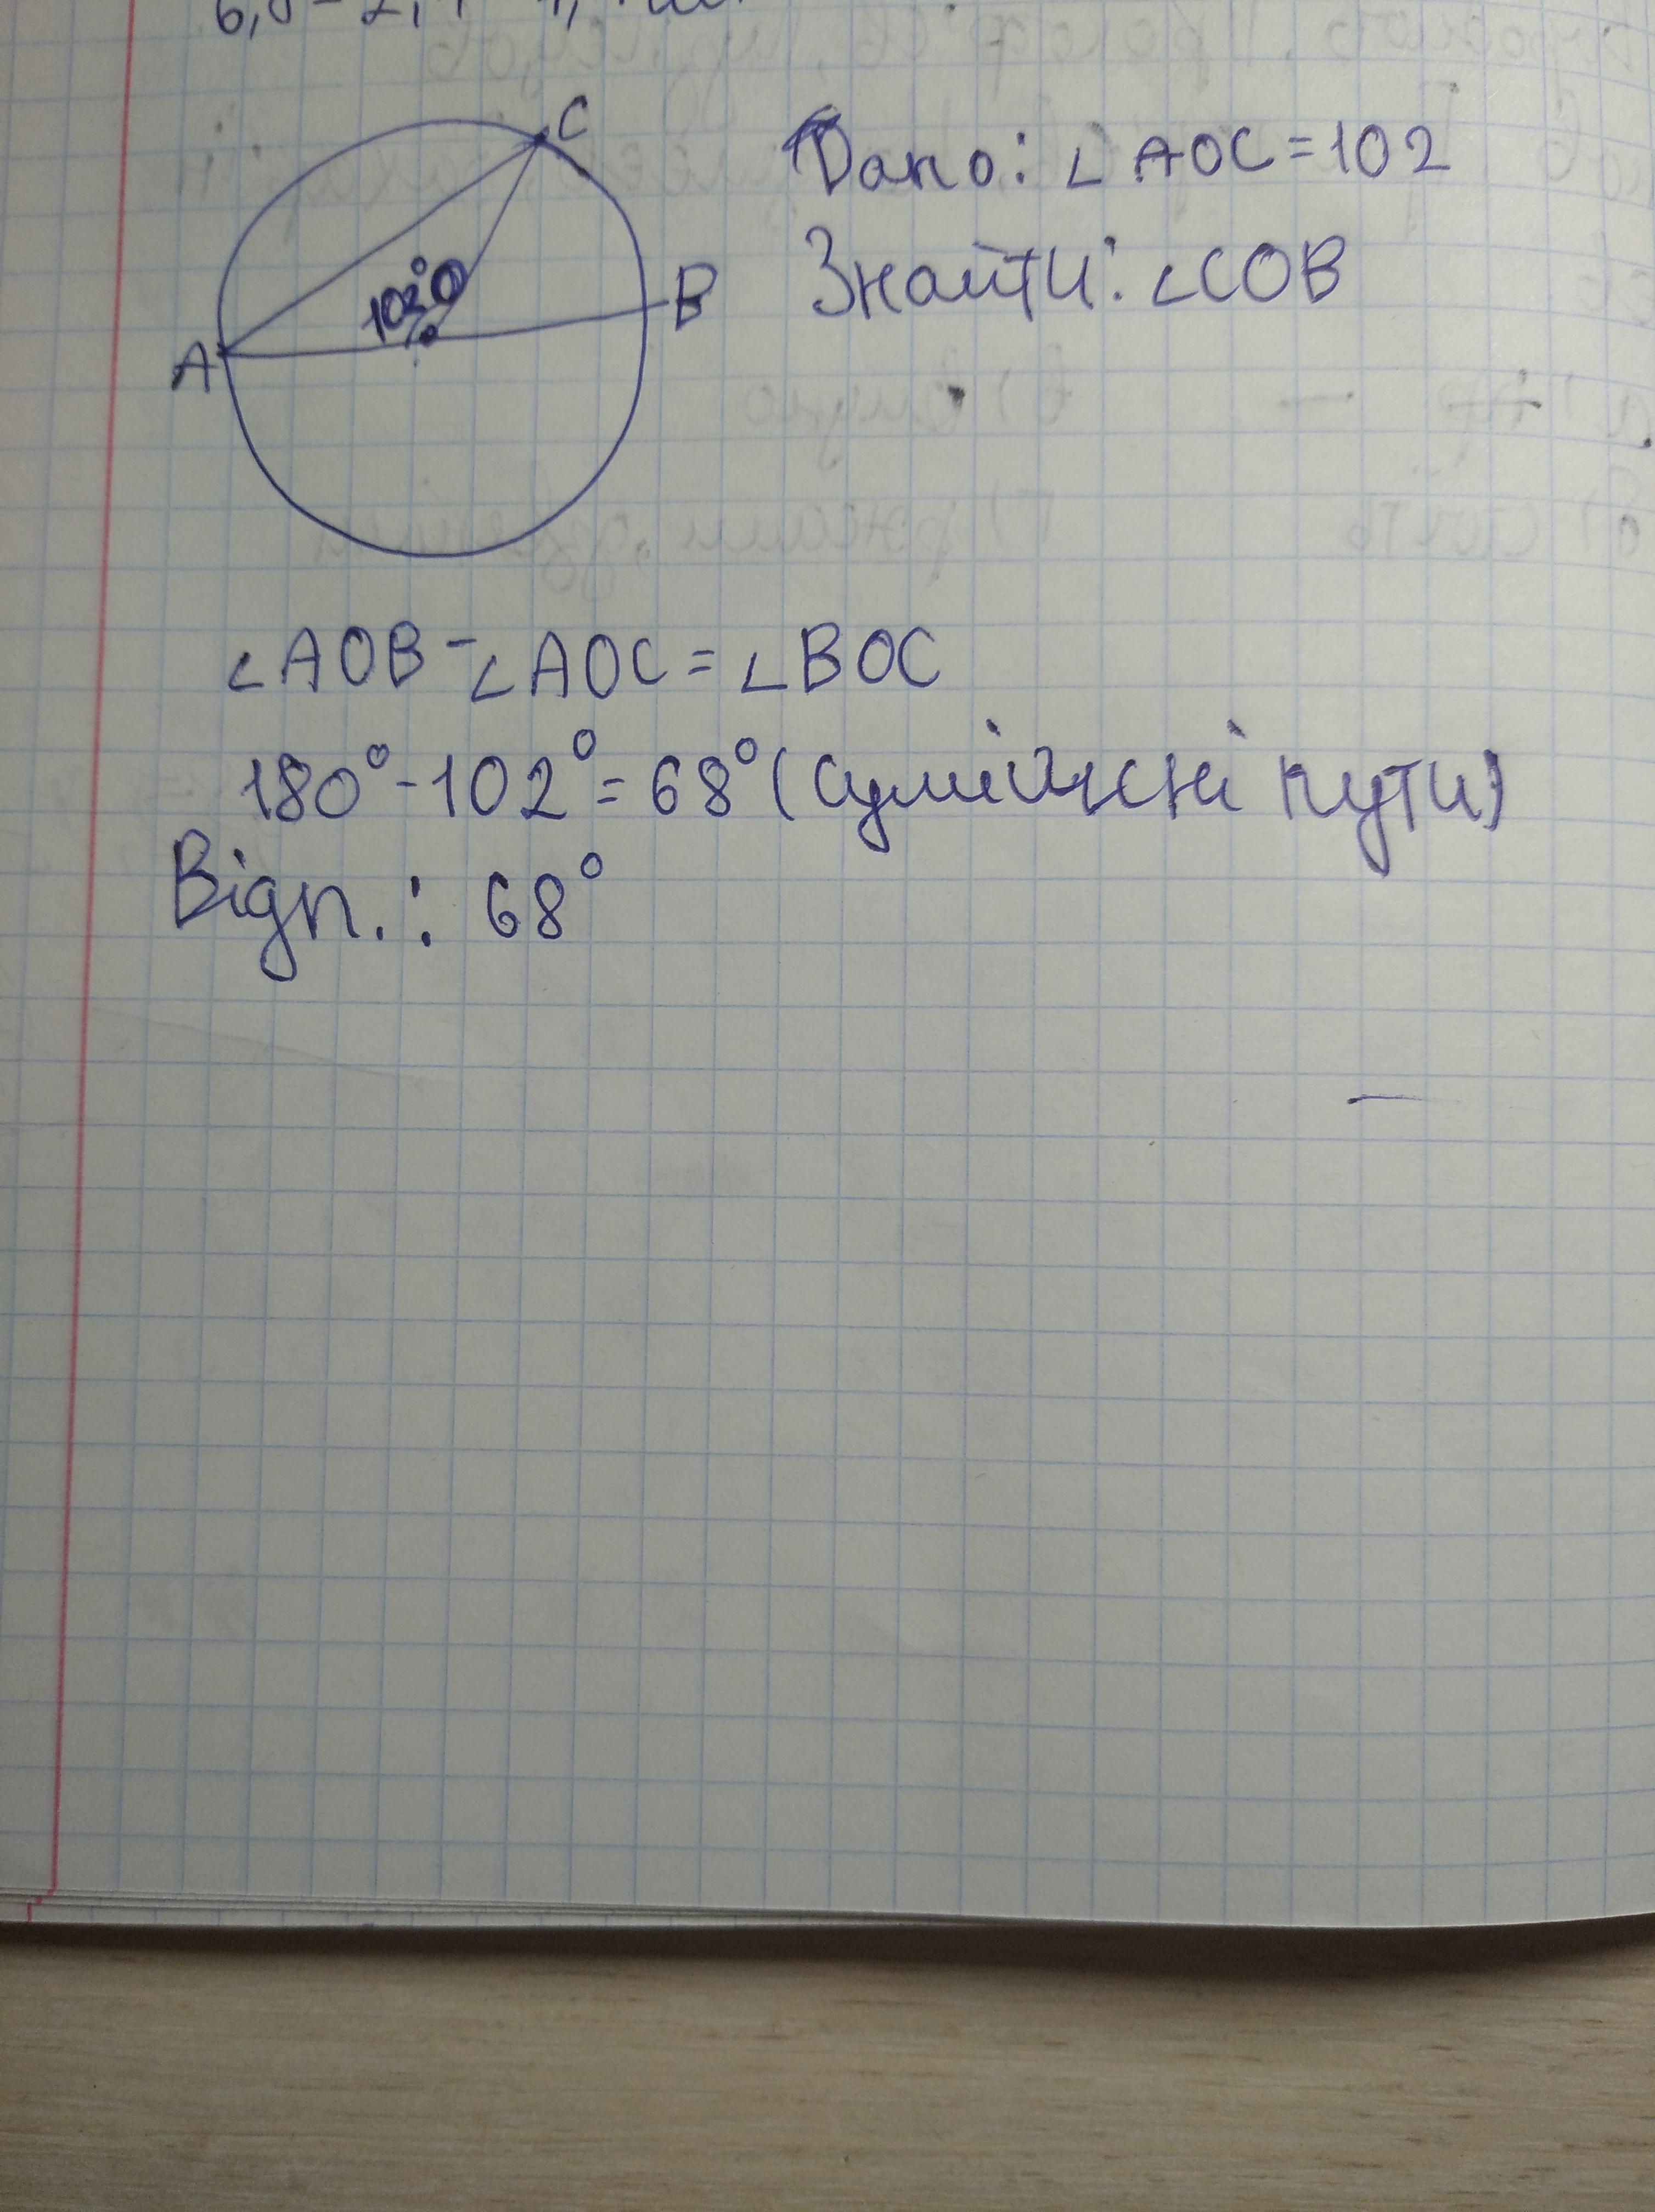 Дано: ∠ AOC = 102
Знайти: ∠COB
C
102°
B
A
∠AOB - ∠AOC = ∠BOC
180° - 102° = 68° (суміжні кути)
Відп.: 68°